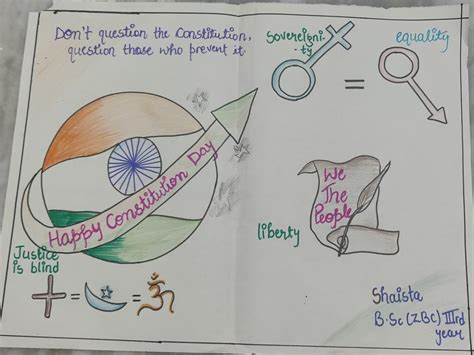 Don't question the Constitution,
question those who prevent it.
Sovereigni-
ty
equality
=
Happy Constitution Day
We
The
People
liberty
Justice
is blind
+ = ☪ = ॐ
Shaista
B.Sc (ZBC) IIIrd
year